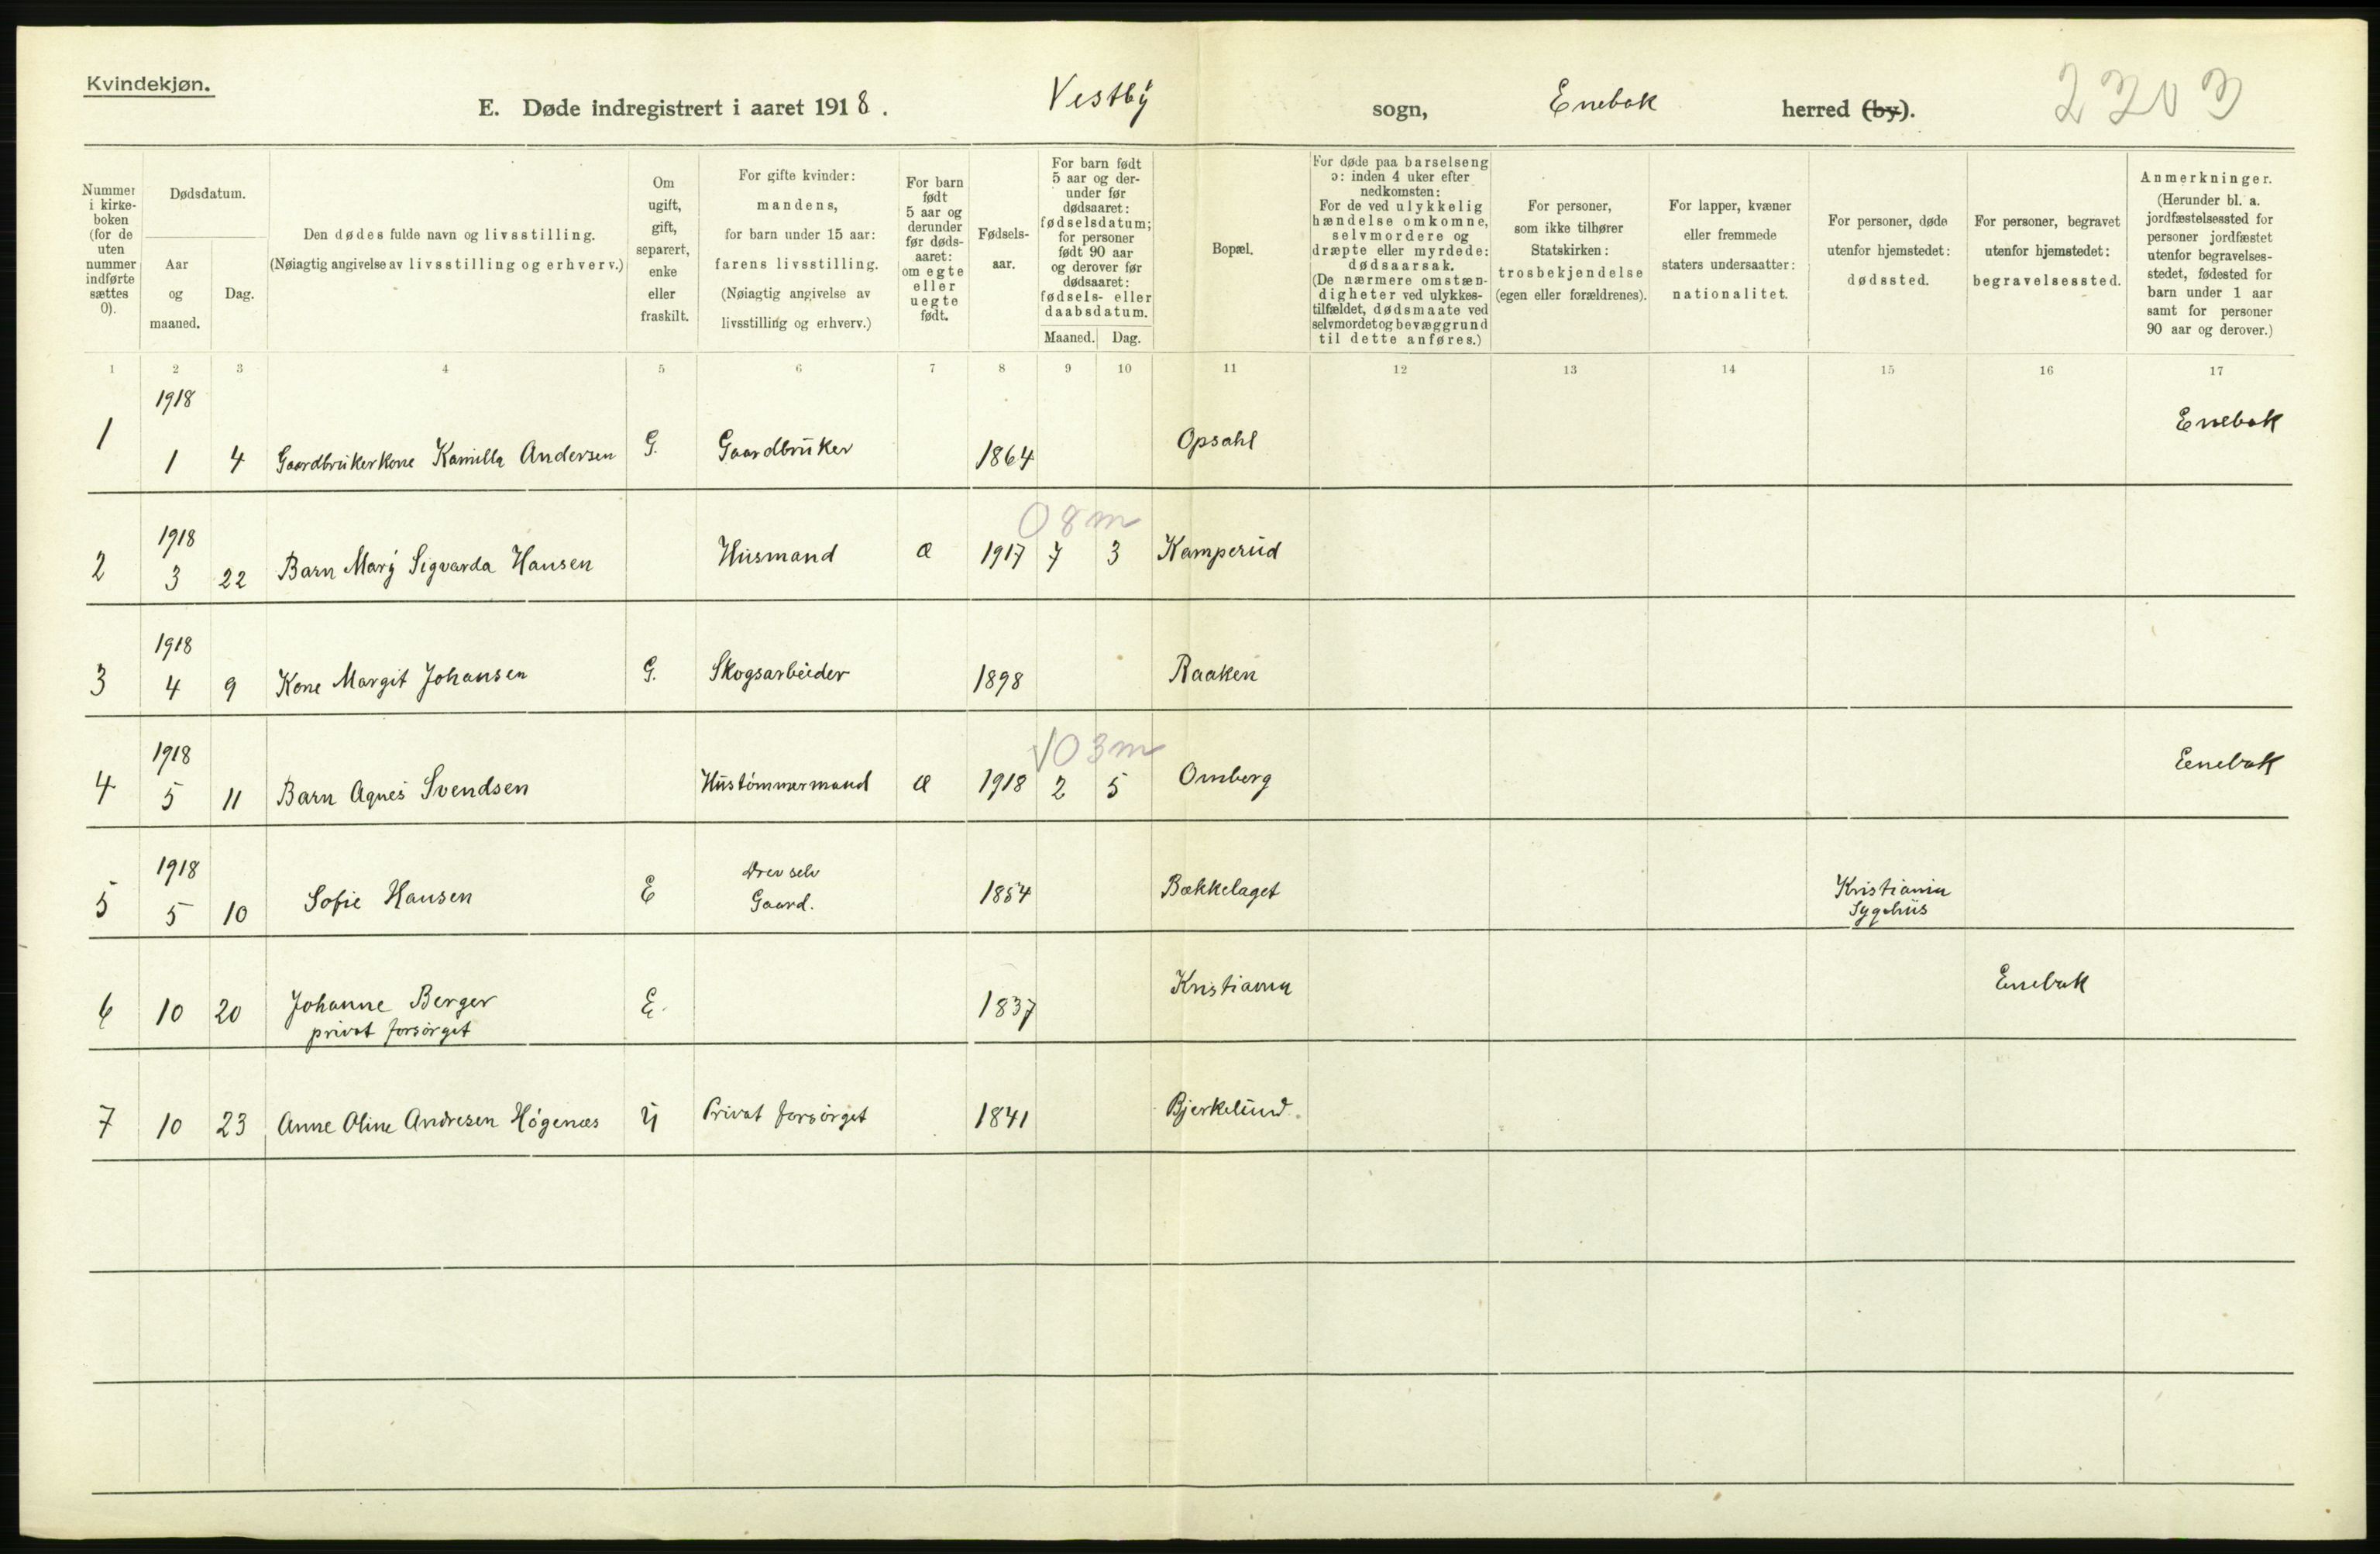 Kvindekjøn.
E. Døde indregistrert i aaret 1918. Vestby sogn, Enebak herred (by).
2303
Nummer i kirke- boken (for de uten nummer indførte sættes 0).
Dødsdatum.
Aar og maaned.
Dag.
Den dødes fulde navn og livsstilling.
(Nøiagtig angivelse av livsstilling og erhverv.)
Om ugift, gift, separert, enke eller fraskilt.
For gifte kvinder: mandens, for barn under 15 aar: farens livsstilling. (Nøiagtig angivelse av livsstilling og erhverv.)
For barn født 5 aar og derunder før døds- aaret: om egte eller uegte født.
Fødsels- aar.
For barn født 5 aar og der- under før dødsaaret: fødselsdatum; for personer født 90 aar og derover før dødsaaret: fødsels- eller daabsdatum.
Maaned. Dag.
Bopæl.
For døde paa barselseng ɔ: inden 4 uker efter nedkomsten: For de ved ulykkelig hændelse omkomne, selvmordere og dræpte eller myrdede: dødsaarsak. (De nærmere omstæn- digheter ved ulykkes- tilfældet, dødsmaate ved selvmordet og bevæggrund til dette anføres.)
For personer, som ikke tilhører Statskirken: trosbekjendelse (egen eller forældrenes).
For lapper, kvæner eller fremmede staters undersaatter: nationalitet.
For personer, døde utenfor hjemstedet: dødssted.
For personer, begravet utenfor hjemstedet: begravelsessted.
Anmerkninger. (Herunder bl. a. jordfæstelsessted for personer jordfæstet utenfor begravelses- stedet, fødested for barn under 1 aar samt for personer 90 aar og derover.)
1 2 3 4 5 6 7 8 9 10 11 12 13 14 15 16 17
1918
1 1 4 Gaardbrukerkone Kamilla Andersen G. Gaardbruker 1864 Opsahl Enebak
1918 08m
2 3 22 Barn Mary Sigvarda Hansen Husmand Æ 1917 7 3 Kamperud
1918
3 4 9 Kone Margit Johansen G. Skogsarbeider 1898 Raaken
1918 √03m
4 5 11 Barn Agnes Svendsen Hustømmermand Æ 1918 2 5 Omberg Enebak
1918
5 5 10 Sofie Hansen E Drev selv Gaard. 1854 Bækkelaget Kristiania Sygehus
6 10 20 Johanne Berger E. 1837 Kristiania Enebak
privat forsørget
7 10 23 Anne Oline Andresen Høgenæs U Privat forsørget 1841 Bjerkelund.